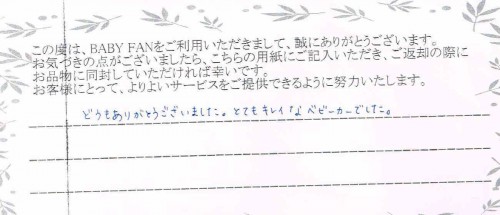 この度は、BABY FANをご利用いただきまして、誠にありがとうございます。
お気づきの点がございましたら、こちらの用紙にご記入いただき、ご返却の際に
お品物に同封していただければ幸いです。
お客様にとって、よりよいサービスをご提供できるように努力いたします。
どうもありがとうございました。とてもキレイなベビーカーでした。